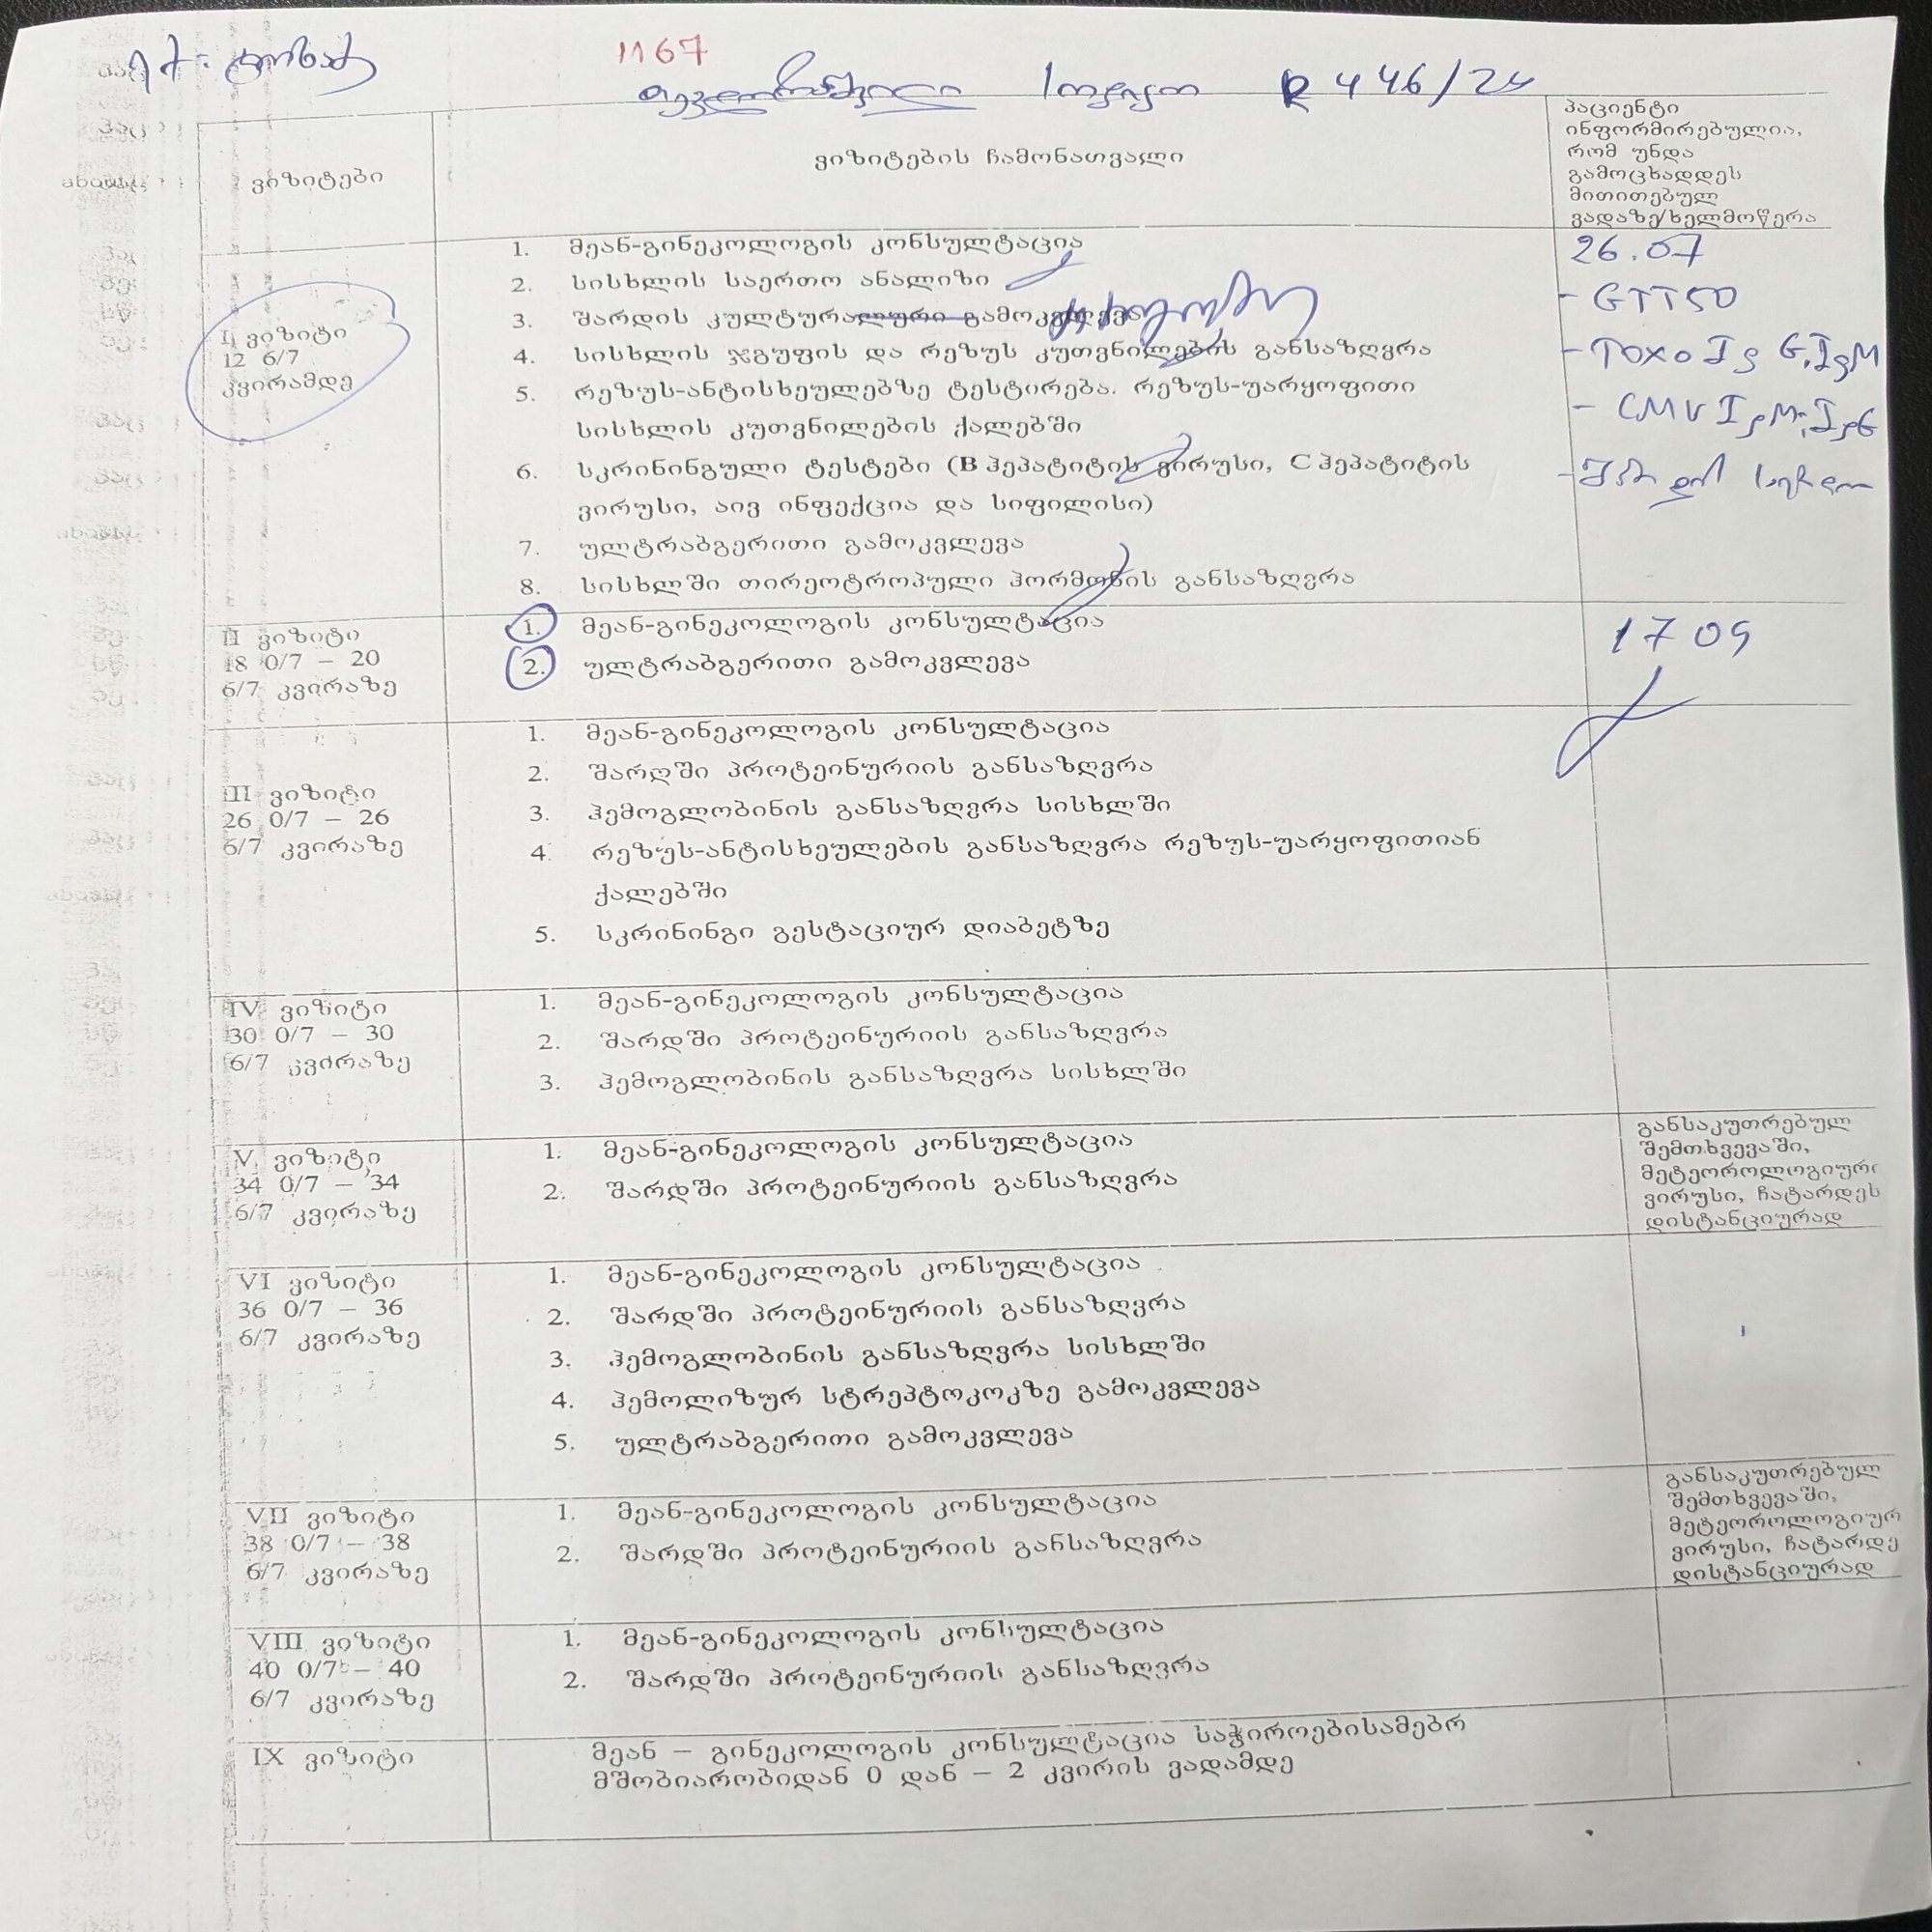 1167
R 446/24
ვიზიტები
ვიზიტების ჩამონათვალი
პაციენტი
ინფორმირებულია,
რომ უნდა
გამოცხადდეს
მითითებულ
ვადაზე/ხელმოწერა
I ვიზიტი
12 6/7
კვირამდე
1. მეან-გინეკოლოგის კონსულტაცია
2. სისხლის საერთო ანალიზი
3. შარდის კულტურალური გამოკვლევა
4. სისხლის ჯგუფის და რეზუს კუთვნილების განსაზღვრა
5. რეზუს-ანტისხეულებზე ტესტირება. რეზუს-უარყოფითი
სისხლის კუთვნილების ქალებში
6. სკრინინგული ტესტები (B ჰეპატიტის ვირუსი, C ჰეპატიტის
ვირუსი, აივ ინფექცია და სიფილისი)
7. ულტრაბგერითი გამოკვლევა
8. სისხლში თირეოტროპული ჰორმონის განსაზღვრა
26.07
- GTT50
- TOXO IgG, IgM
- CMV IgM, IgG
- შარდის საერთო
II ვიზიტი
18 0/7 – 20
6/7 კვირაზე
1. მეან-გინეკოლოგის კონსულტაცია
2. ულტრაბგერითი გამოკვლევა
17 09
III ვიზიტი
26 0/7 – 26
6/7 კვირაზე
1. მეან-გინეკოლოგის კონსულტაცია
2. შარდში პროტეინურიის განსაზღვრა
3. ჰემოგლობინის განსაზღვრა სისხლში
4. რეზუს-ანტისხეულების განსაზღვრა რეზუს-უარყოფითიან
ქალებში
5. სკრინინგი გესტაციურ დიაბეტზე
IV ვიზიტი
30 0/7 – 30
6/7 კვირაზე
1. მეან-გინეკოლოგის კონსულტაცია
2. შარდში პროტეინურიის განსაზღვრა
3. ჰემოგლობინის განსაზღვრა სისხლში
V ვიზიტი
34 0/7 – 34
6/7 კვირაზე
1. მეან-გინეკოლოგის კონსულტაცია
2. შარდში პროტეინურიის განსაზღვრა
განსაკუთრებულ
შემთხვევაში,
მეტეოროლოგიური
ვირუსი, ჩატარდეს
დისტანციურად
VI ვიზიტი
36 0/7 – 36
6/7 კვირაზე
1. მეან-გინეკოლოგის კონსულტაცია
2. შარდში პროტეინურიის განსაზღვრა
3. ჰემოგლობინის განსაზღვრა სისხლში
4. ჰემოლიზურ სტრეპტოკოკზე გამოკვლევა
5. ულტრაბგერითი გამოკვლევა
VII ვიზიტი
38 0/7 – 38
6/7 კვირაზე
1. მეან-გინეკოლოგის კონსულტაცია
2. შარდში პროტეინურიის განსაზღვრა
განსაკუთრებულ
შემთხვევაში,
მეტეოროლოგიურ
ვირუსი, ჩატარდე
დისტანციურად
VIII ვიზიტი
40 0/7 – 40
6/7 კვირაზე
1. მეან-გინეკოლოგის კონსულტაცია
2. შარდში პროტეინურიის განსაზღვრა
IX ვიზიტი
მეან – გინეკოლოგის კონსულტაცია საჭიროებისამებრ
მშობიარობიდან 0 დან – 2 კვირის ვადამდე